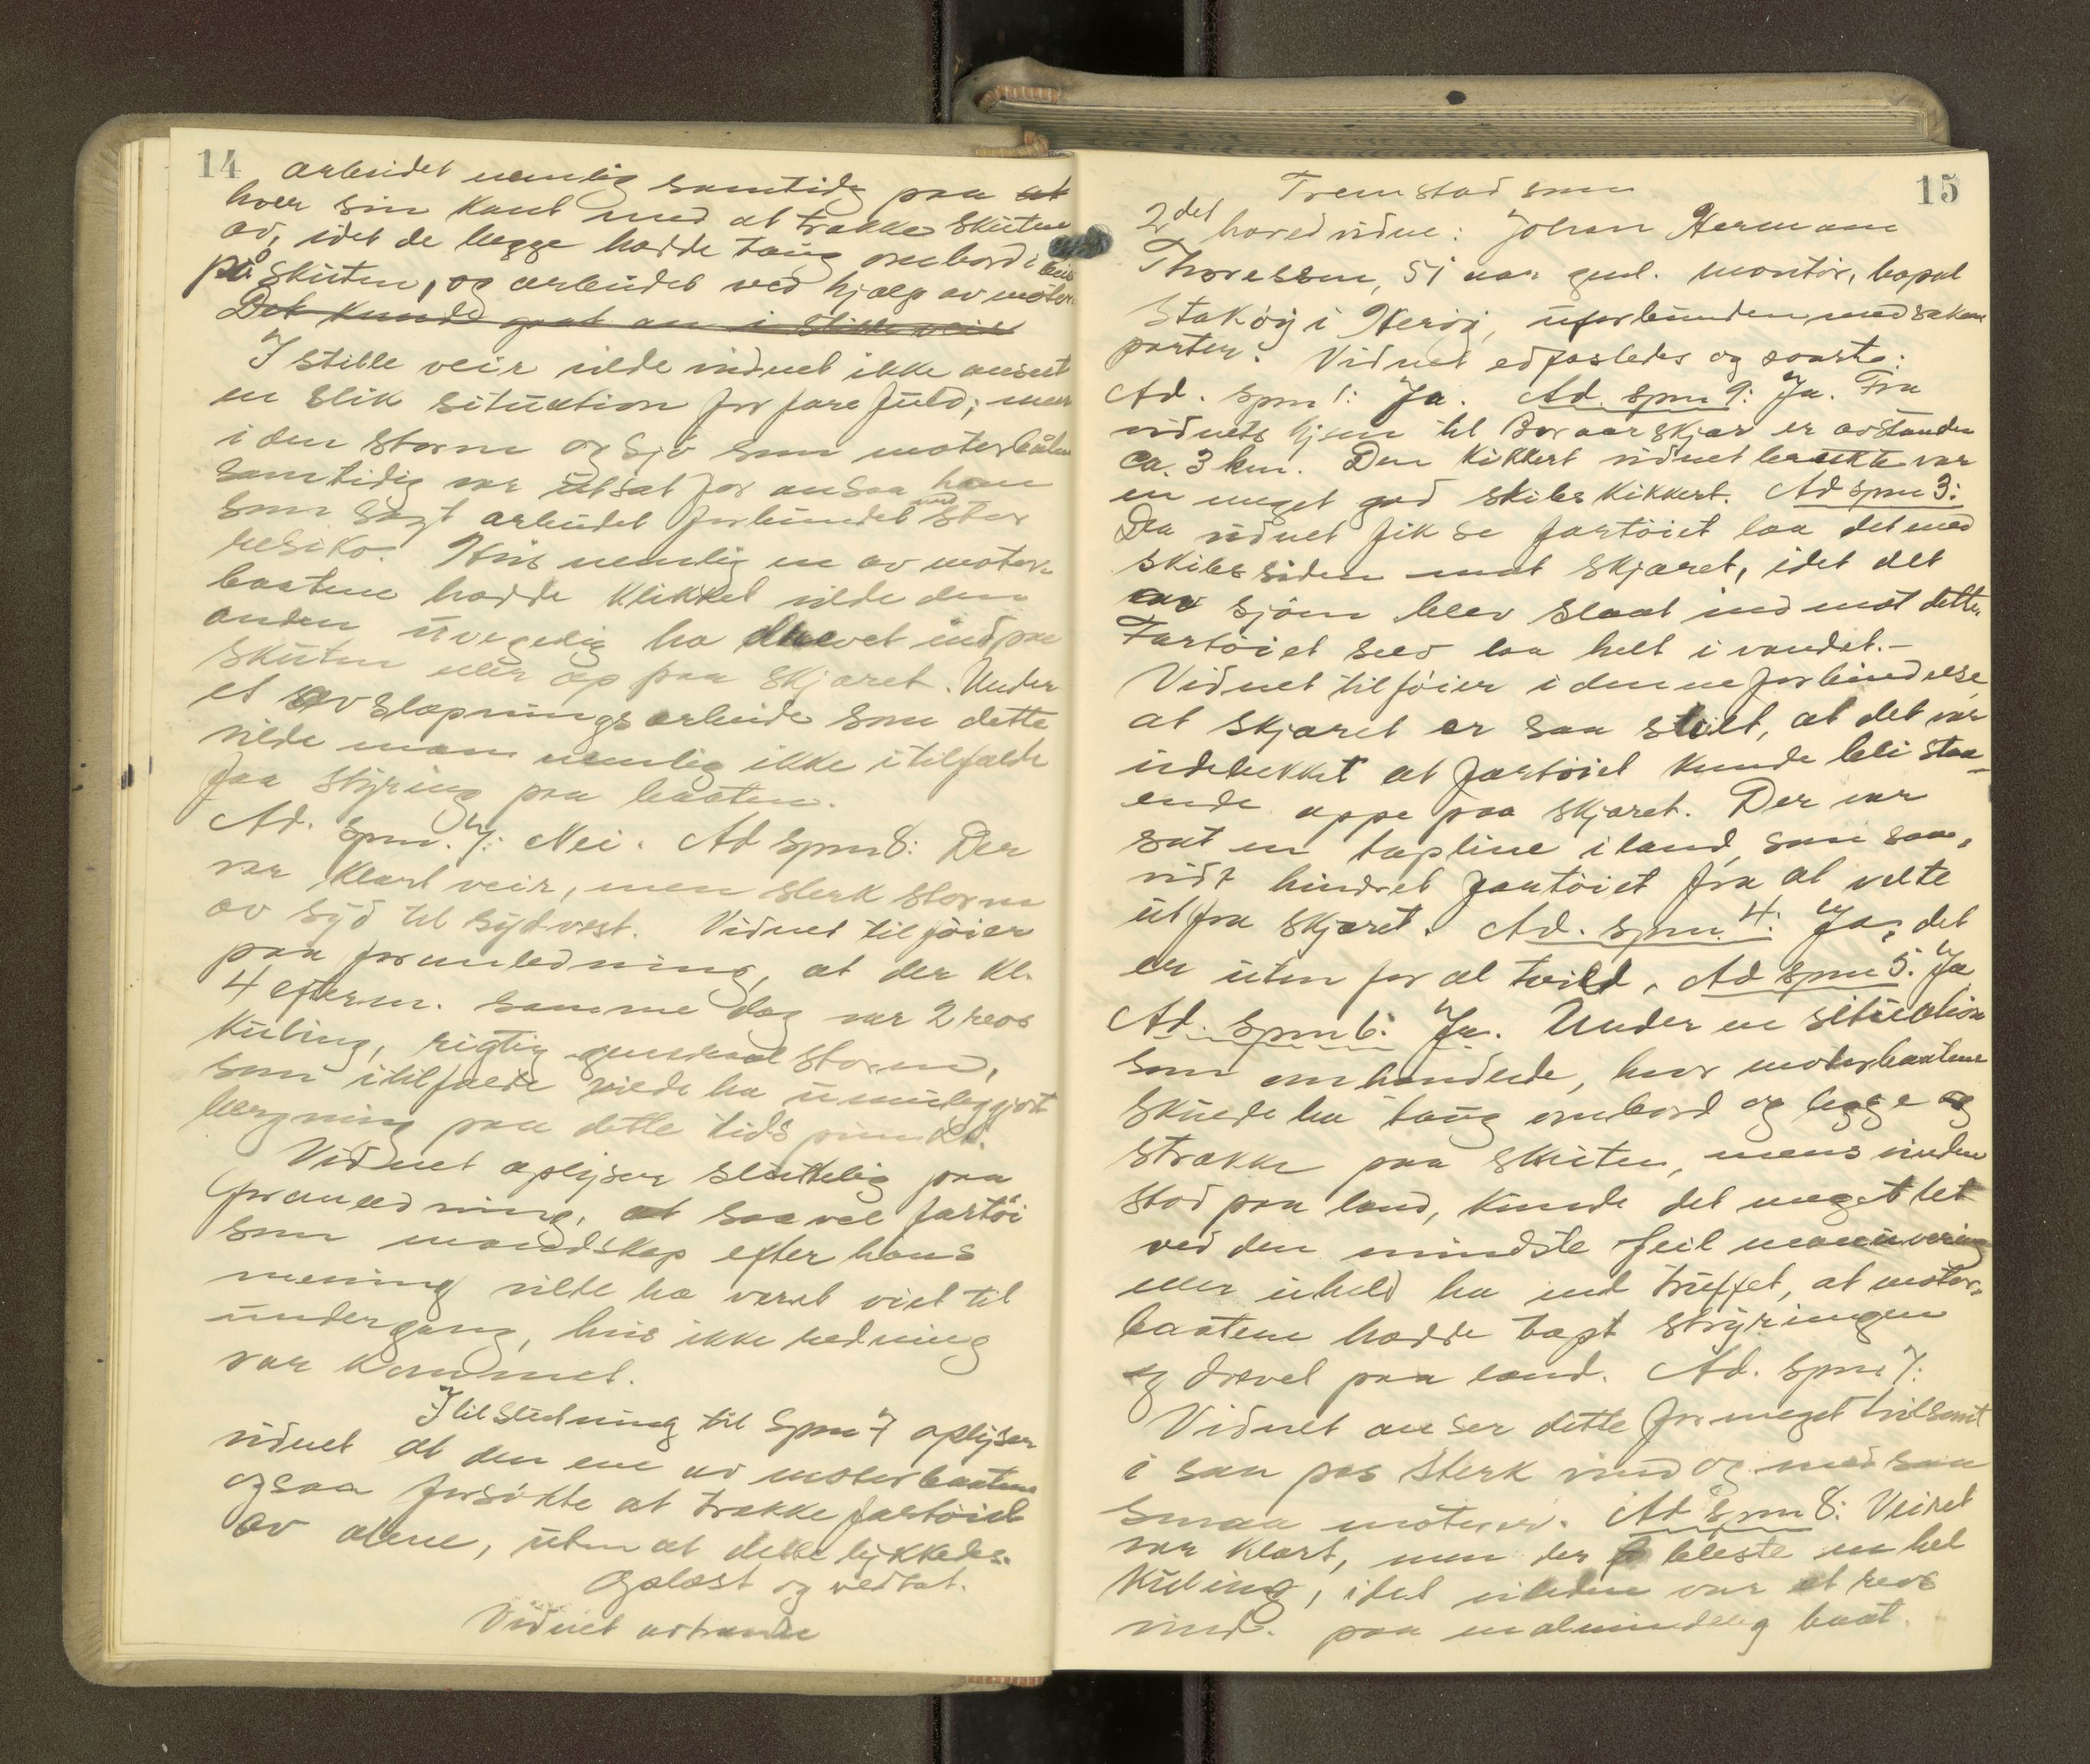 14
arbeidet nemlig samtidig paa at
hver sin kant med at trække skuten
av, idet de begge hadde taug ombord i
på skuten, og arbeidet ved hjælp av motor.
Det kunde godt an i stille veir
I stille veir vilde vidnet ikke anset
en slik situation for farefuld; men
i den storm og sjö som motorbåten
samtidig var utsat for ansaa han
som sagt arbeidet forbundet med stor
resiko. Hvis nemlig en av motor-
baatene hadde klikket vilde den
anden uvegerlig ha drevet ind paa
skuten eller op paa skjæret. Under
et avslæpningsarbeide som dette
vilde man nemlig ikke i tilfælde
faa styring paa baaten.
Ad. spm. 7: Nei. Ad spm 8: Der
var klart veir, men sterk storm
av syd til sydvest. Vidnet tilföier
paa foranledning, at der kl.
4 efterm. samme dag var 2 revs
kuling, rigtig general storm,
som i tilfælde vilde ha umuliggjort
bergning paa dette tidspunkt.
Vidnet oplyser sluttelig paa
foranledning, at saavel fartöi
som mandskap efter hans
mening vilde ha været viet til
undergang, hvis ikke redning
var kommet.
I tilslutning til spm 7 oplyser
vidnet at den ene av motorbaatene
ogsaa forsökte at trække fartöiet
av alene, uten at dette lykkedes.
Oplæst og vedtat.
Vidnet avtraadte
15
Fremstod som
2det hovedvidne: Johan Hermann
Thoressen, 51 aar gml. montör, bopæl
Stoköy i Heröy, uforbunden med sakens
parter. Vidnet edfæstedes og svarte:
Ad. spm 1: Ja. Ad. spm 9: Ja. Fra
vidnets hjem til skjær er avstanden
ca. 3 km. Den kikkert vidnet brukte var
en meget god skibskikkert. Ad spm 3:
Da vidnet fik se fartöiet laa det med
skibssiden mot skjæret, idet det
av sjöen blev slaat ind mot dette.
Fartöiet selv laa helt i vandet.-
Vidnet tilföier i denne forbindelse
at skjæret er saa steilt, at det var
udelukket at fartöiet kunde bli staa-
ende oppe paa skjæret. Der var
sat en topline i land, som saa-
vidt hindret fartöiet fra at velte
ut fra skjæret. Ad. spm. 4: Ja, det
er uten for al tvild. Ad spm 5: Ja
Ad. spm 6: Ja. Under en situation
som omhandlede, hvor motorbaatene
skulde ha taug ombord og begge og
strække paa skuten, mens vinden
stod paa land, kunde det meget let
ved den mindste feil manuvering
eller uheld ha ind truffet, at motor-
baatene hadde tapt styringen
og drevet paa land. Ad. spm 7:
Vidnet anser dette for meget tvilsomt
i saa pas sterk vind og med saa
smaa motorer. Ad spm 8: Veiret
var klart, men der blæste en hel
kuling, idet vinden var et revs
vind. paa en almindelig baat.